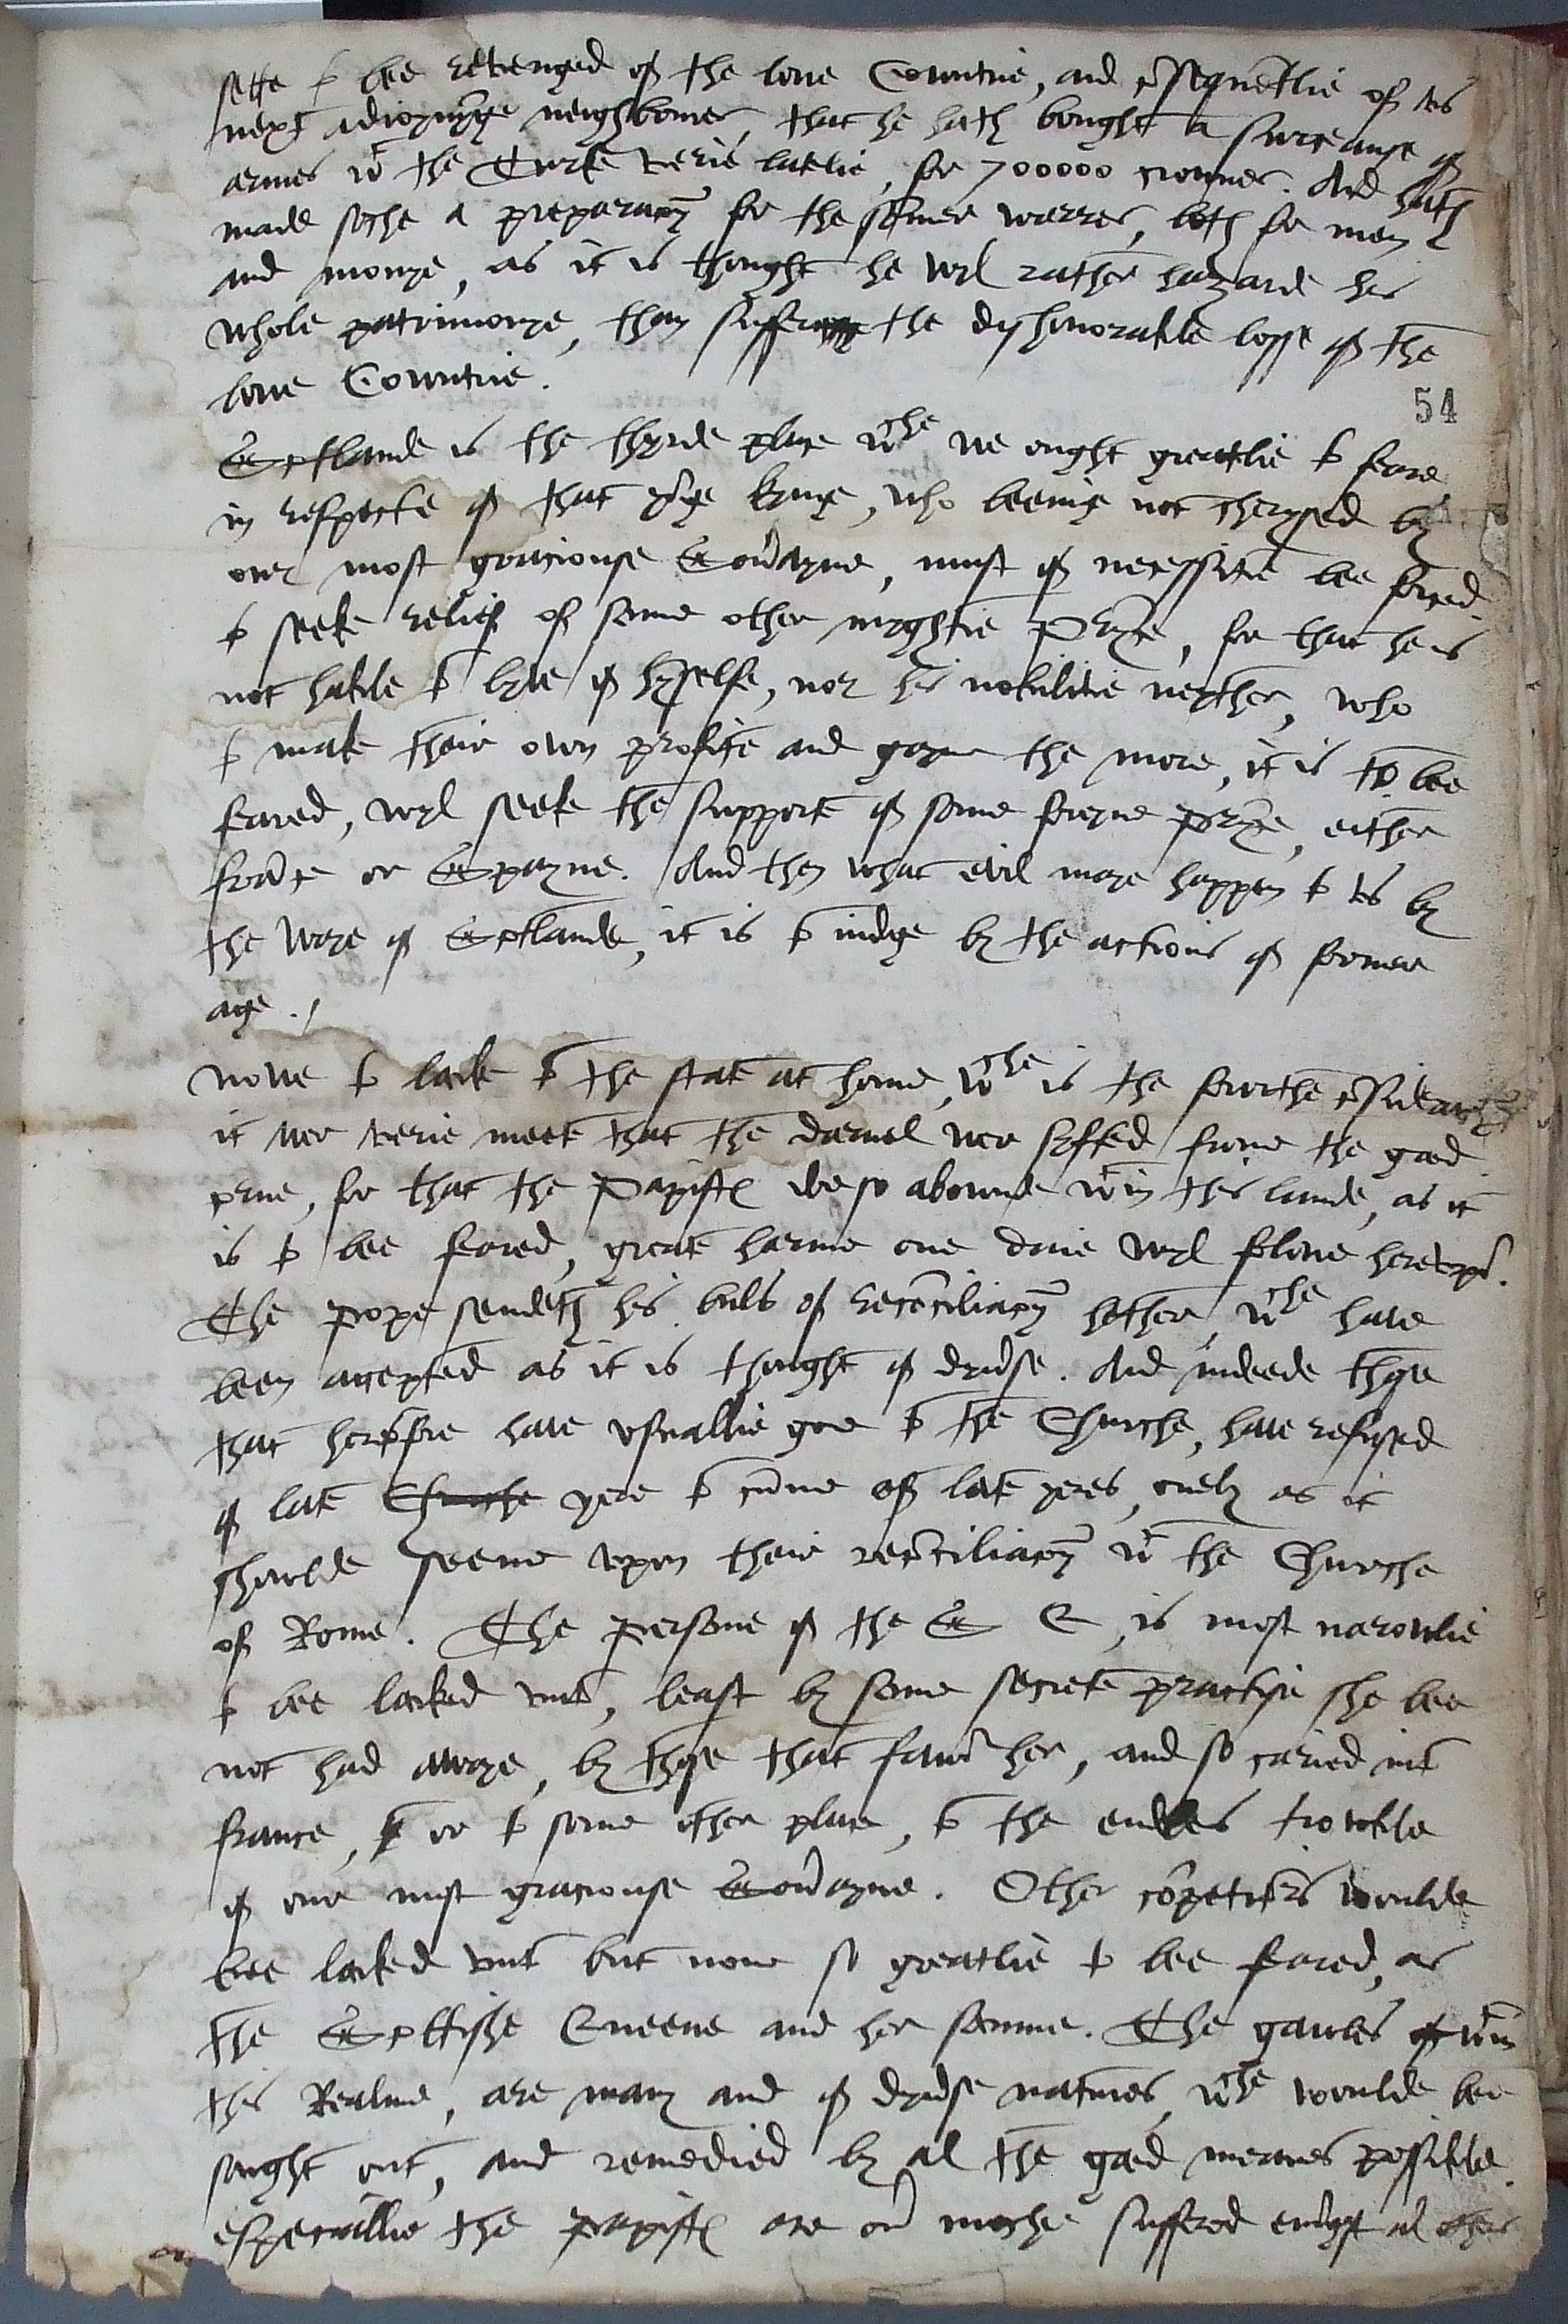 sette to bee revenged of the lowe Countrie, and cõsequẽtlie of vs
next adioyninge neighboures, that he hath bought a surceanse of
armes wt the Turke verie latelie, for 700000 crownes. And hath
made soche a preparacõn for the somer warres, both for men
and monye, as it is thought he wyl rather hazarde his
whole patrimonye, then suffer the dyshonorable losse of the
lowe Countrie.
54
Scotlande is the thyrde place wche we ought greatlie to feare
in respecte of that yõge kynge, who beeing not cherysed by
ower most graciouse Soũayne, must of necessitie bee forced
to seeke relief of some other myghtie Prỹce, for that he is
not hable to lyve of hỹselfe, nor his nobilitie neyther, who
to make their own profite and gayne the more, it is to bee
feared, wyl seeke the supporte of some foreyne prỹce, either
frãce or Spayne. And then what evil maye happen to vs by
the waye of Scotlande, it is to iudge by the actions of former
age ./
Nowe to looke to the state at home, wche is the fourthe cõsideracõn
it wer verie meete that the darnel wer syfted frome the good
corne, for that the Papistes doe so abounde wtin this lande, as it
is to bee feared, great harme one daie wyl folowe herevpõ.
The pope sendeth his buls of recõciliacõn hether, wche have
been accepted as it is thought of dyũse. And indeede those
that heretofore have vsuallie gone to the Churche, have refused
of late Churche yere to cũme of late yeres, onely as it
shoulde seeme vpon their recõciliacõn wt the Churche
of Rome. The persone of the S Q, is most narowlie
to bee looked vnto, least by some secrete practise she bee
not had awaye, by those that favor her, and so caried into
france, or to some other place, to the endles trowble
of our most graciouse Soũayne. Other cõpetitors woulde
bee looked vnto but none so greatlie to bee feared, as
the Scottishe Queene and her sonne. The gawles of wtin
this Realme, are many and of dyũse natures, wche woulde bee
sought out, and remedied by al the good meanes possible.
especiallie the papistes are oũ moche suffred emõgst al others